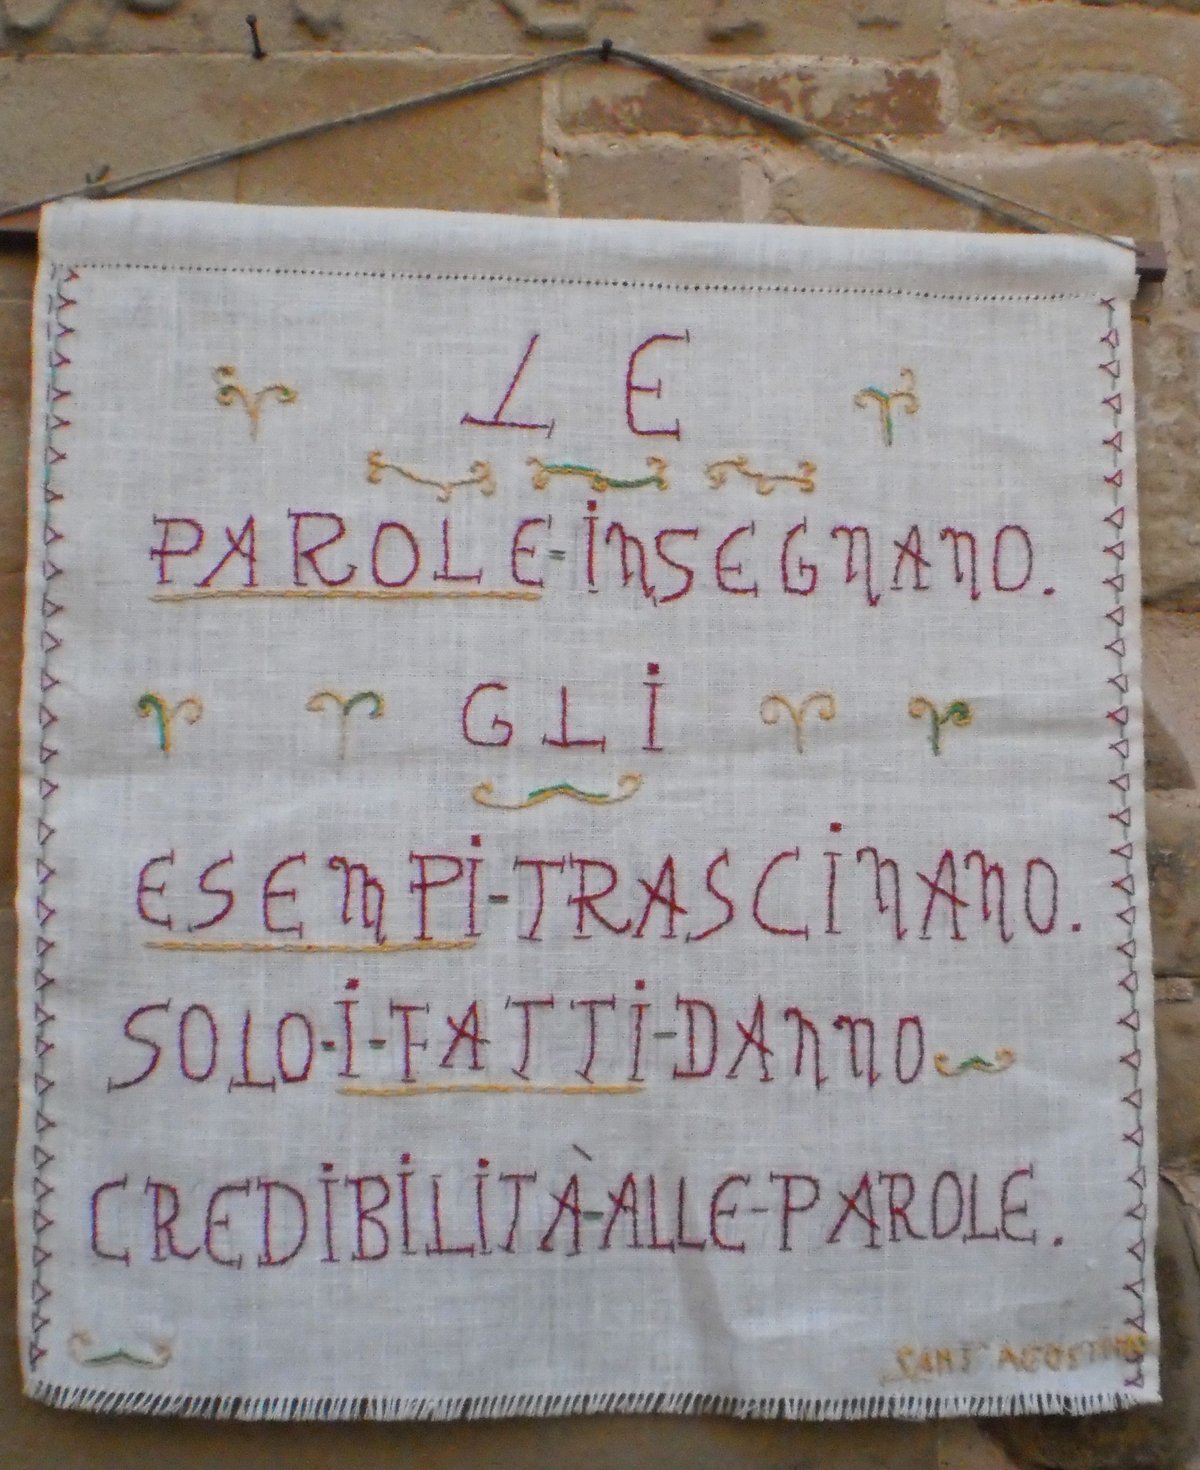 LE
PAROLE-INSEGNANO.
GLI
ESEMPI-TRASCINANO.
SOLO-I-FATTI-DANNO
CREDIBILITÀ-ALLE-PAROLE.
SANT'AGOSTINO